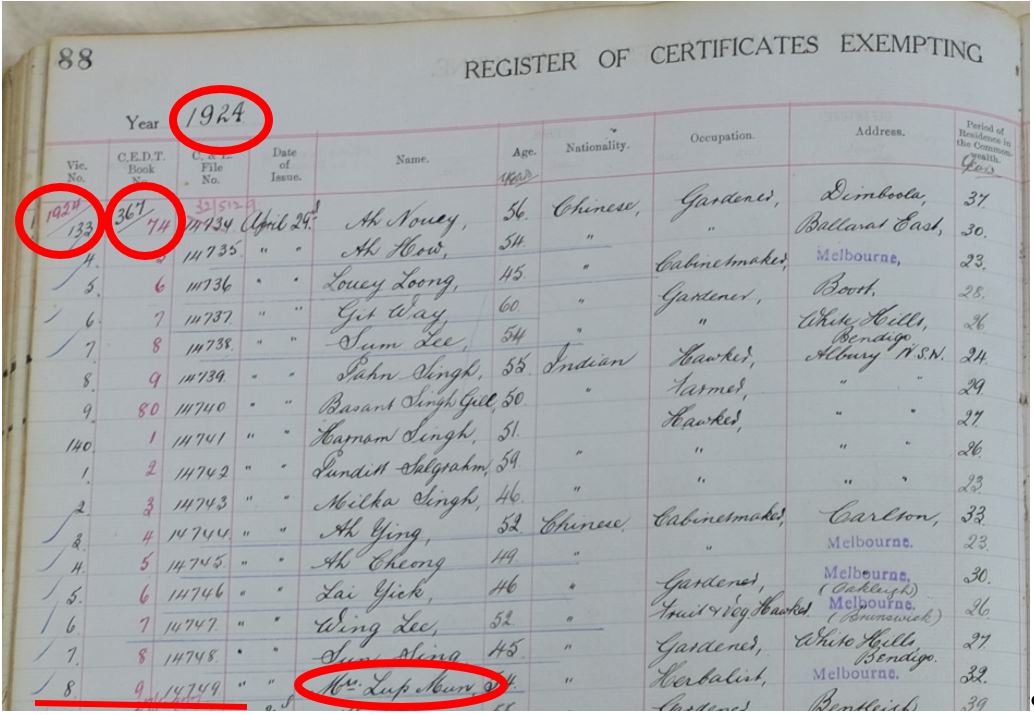 88
REGISTER OF CERTIFICATES EXEMPTING
Year 1924
Vic. No. C.E.D.T. Book No. C. & E. File No. Date of Issue. Name. Age. Nationality. Occupation. Address. Period of Residence in the Commonwealth.
years Years
1924/133 367/74 14734 April 29th Ah Nouey, 56. Chinese, Gardener, Dimboola, 37.
4. 14735 " " Ah How, 54. " " Ballarat East, 30.
5. 6 14736 " " Louey Loong, 45. " Cabinetmaker, Melbourne, 23.
6. 7 14737. " " Git Way, 60. " Gardener, Boort, 28.
7. 8 14738. " " Sum Lee, 54 " " White Hills, Bendigo 26
8. 9 14739. " " Singh, 55. Indian Hawker, Albury N.S.W. 24.
9. 80 14740 " " Basant Singh Gill, 50. " Farmer, " " 29.
140. 1 14741 " " Harnam Singh, 51. " Hawker, " " 27.
1. 2 14742 " " 59. " " " " 26.
2. 3 14743 " " Milka Singh, 46. " " " " 23.
3. 4 14744 " " Ah Ying, 52. Chinese, Cabinetmaker, Carlton, 33
4. 5 14745. " " Ah Cheong 49. " " Melbourne. 23.
5. 6 14746 " " Lai Yick, 46 " Gardener, Melbourne, (Oakleigh) 30.
6. 7 14747. " " Wing Lee, 52. " Fruit & Veg. Hawker Melbourne. (Brunswick) 26
7. 8 14748. " " 45. " Gardener, White Hills Bendigo. 27.
8. 9 14749 " " Mrs. Lup Mun, " Herbalist, Melbourne. 32.
39